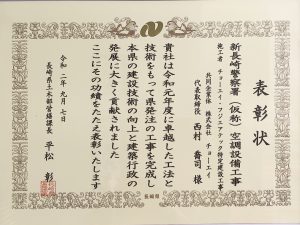 表彰状
新長崎警察署(仮称)空調設備工事
施工者 チョーエイ・フジエアテック特定建設工事
共同企業体 株式会社 チョーエイ
代表取締役 西村 喬司 様
貴社は令和元年度に卓越した工法と
技術をもって県発注の工事を完成し
本県の建設技術の向上と建築行政の
発展に大きく貢献されました
ここにその功績をたたえ表彰いたします
令和二年九月七日
長崎県土木部営繕課長 平松 彰
長崎県